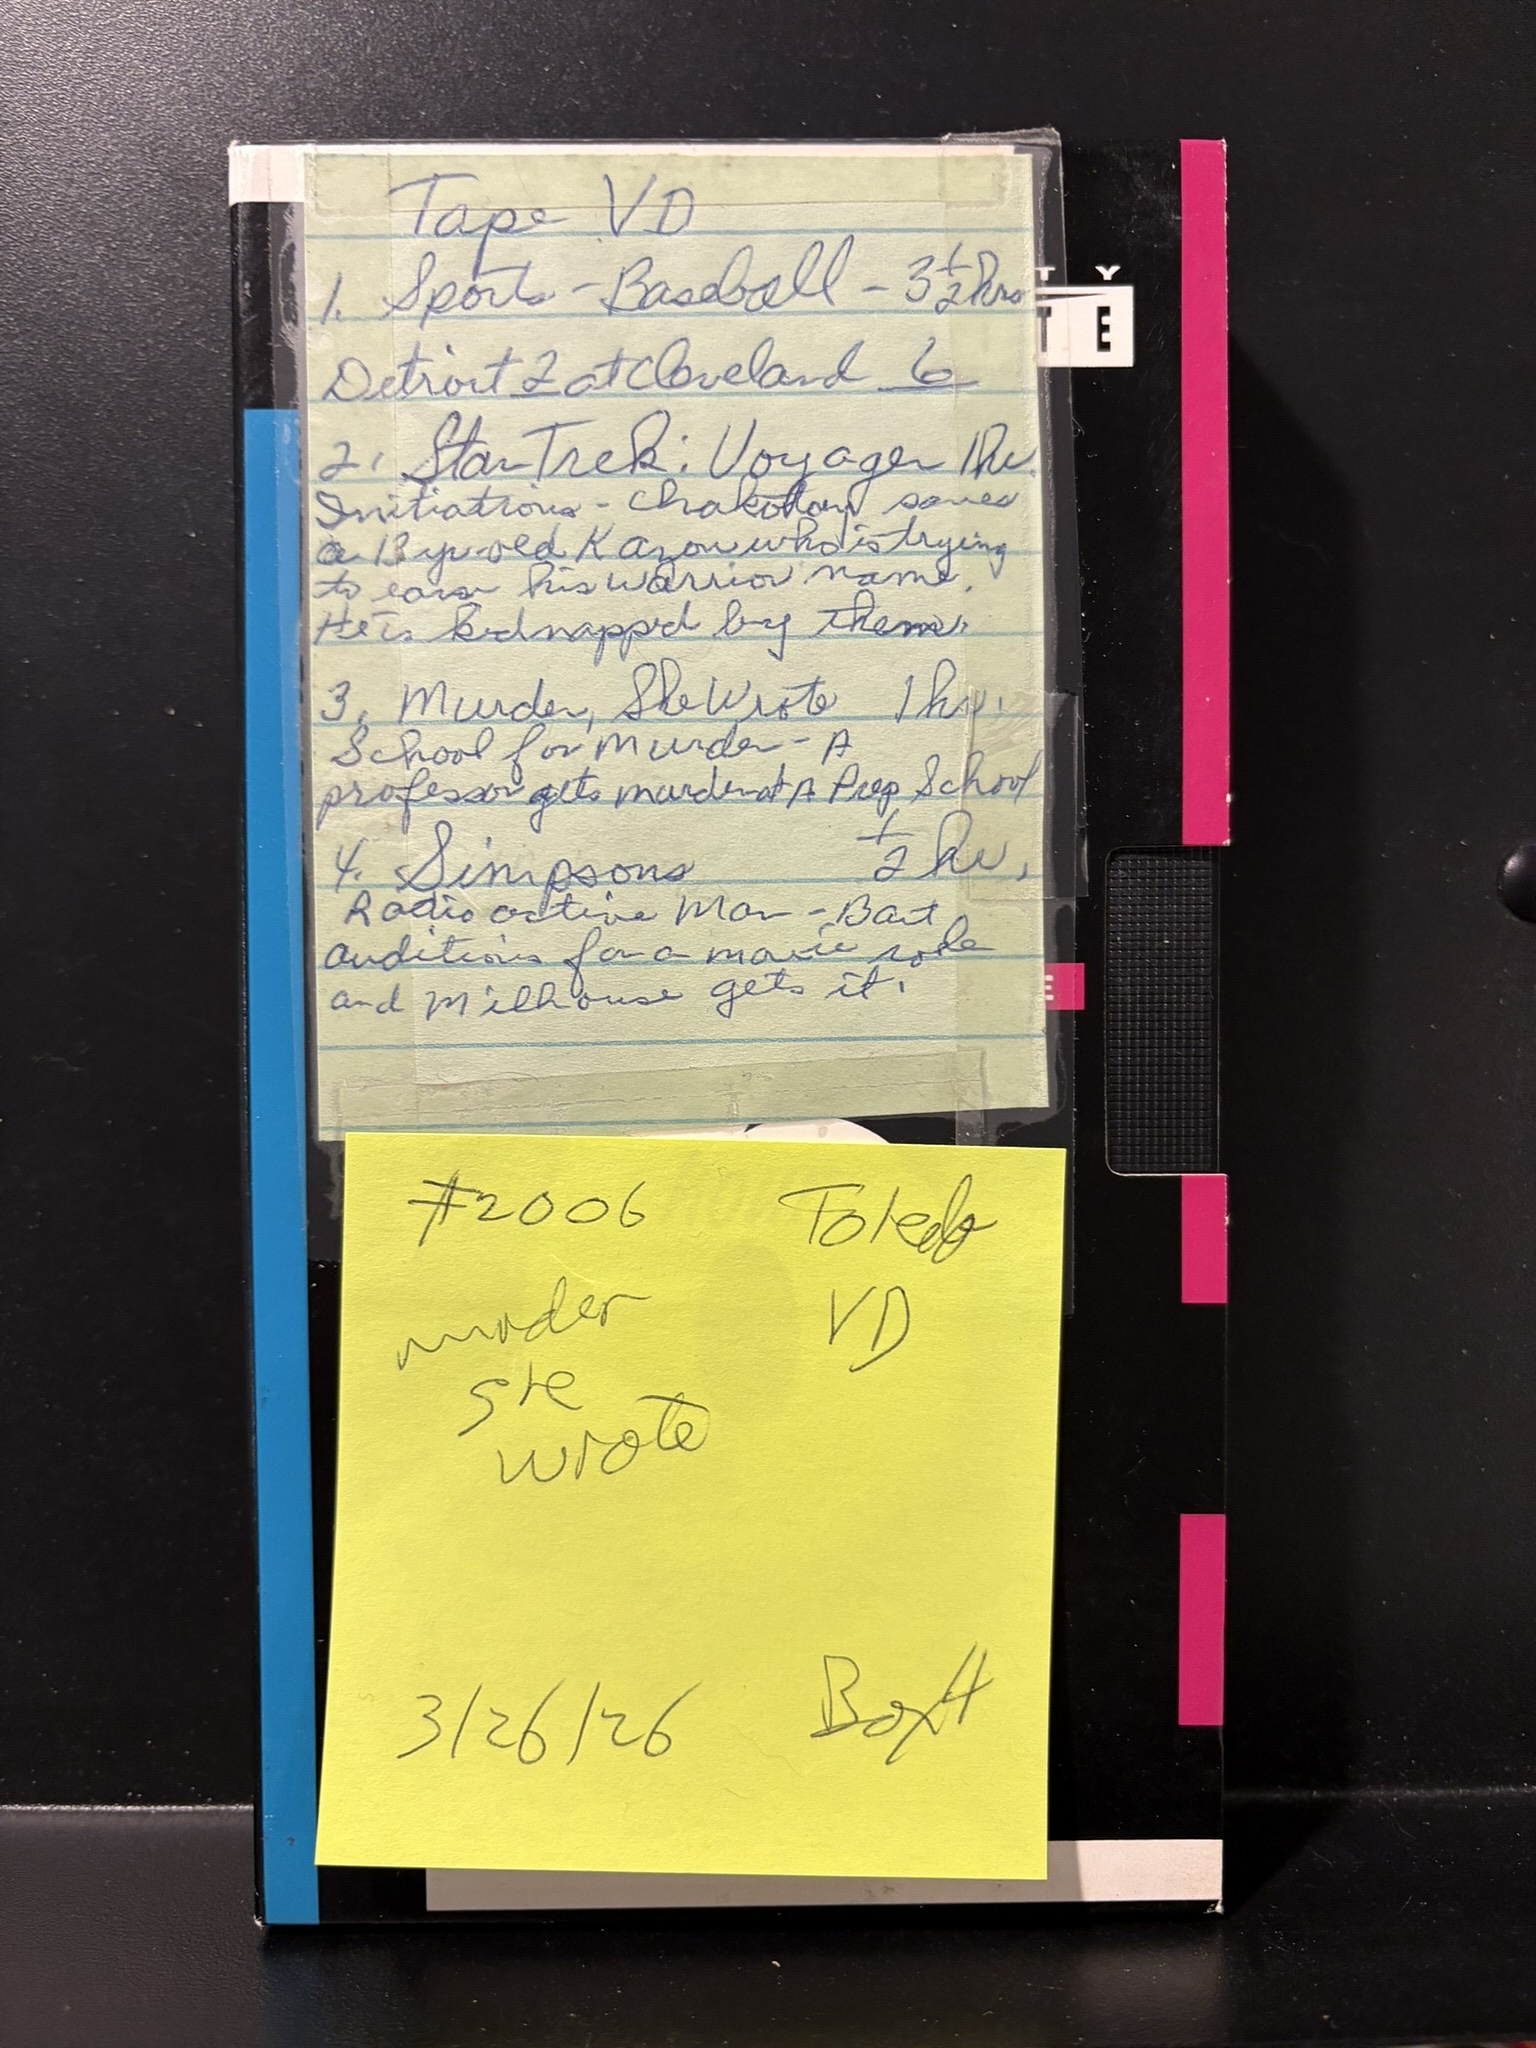 Tape VD
1. Sports - Baseball - 3 1/2 hrs
Detroit 2 at Cleveland 6
2. Star Trek: Voyager 1 hr.
Initiations - Chakotay saves
a 13 yr old Kazon who is trying
to earn his warrior name.
He is kidnapped by them.
3. Murder, She Wrote 1 hr.
School for Murder - A
professor gets murder at A Prep School
4. Simpsons 1/2 hr.
Radio active Man - Bart
auditions for a movie role
and Milhouse gets it.
T Y
T E
E
#2006 Toledo
murder VD
she
wrote
3/26/26 Box H